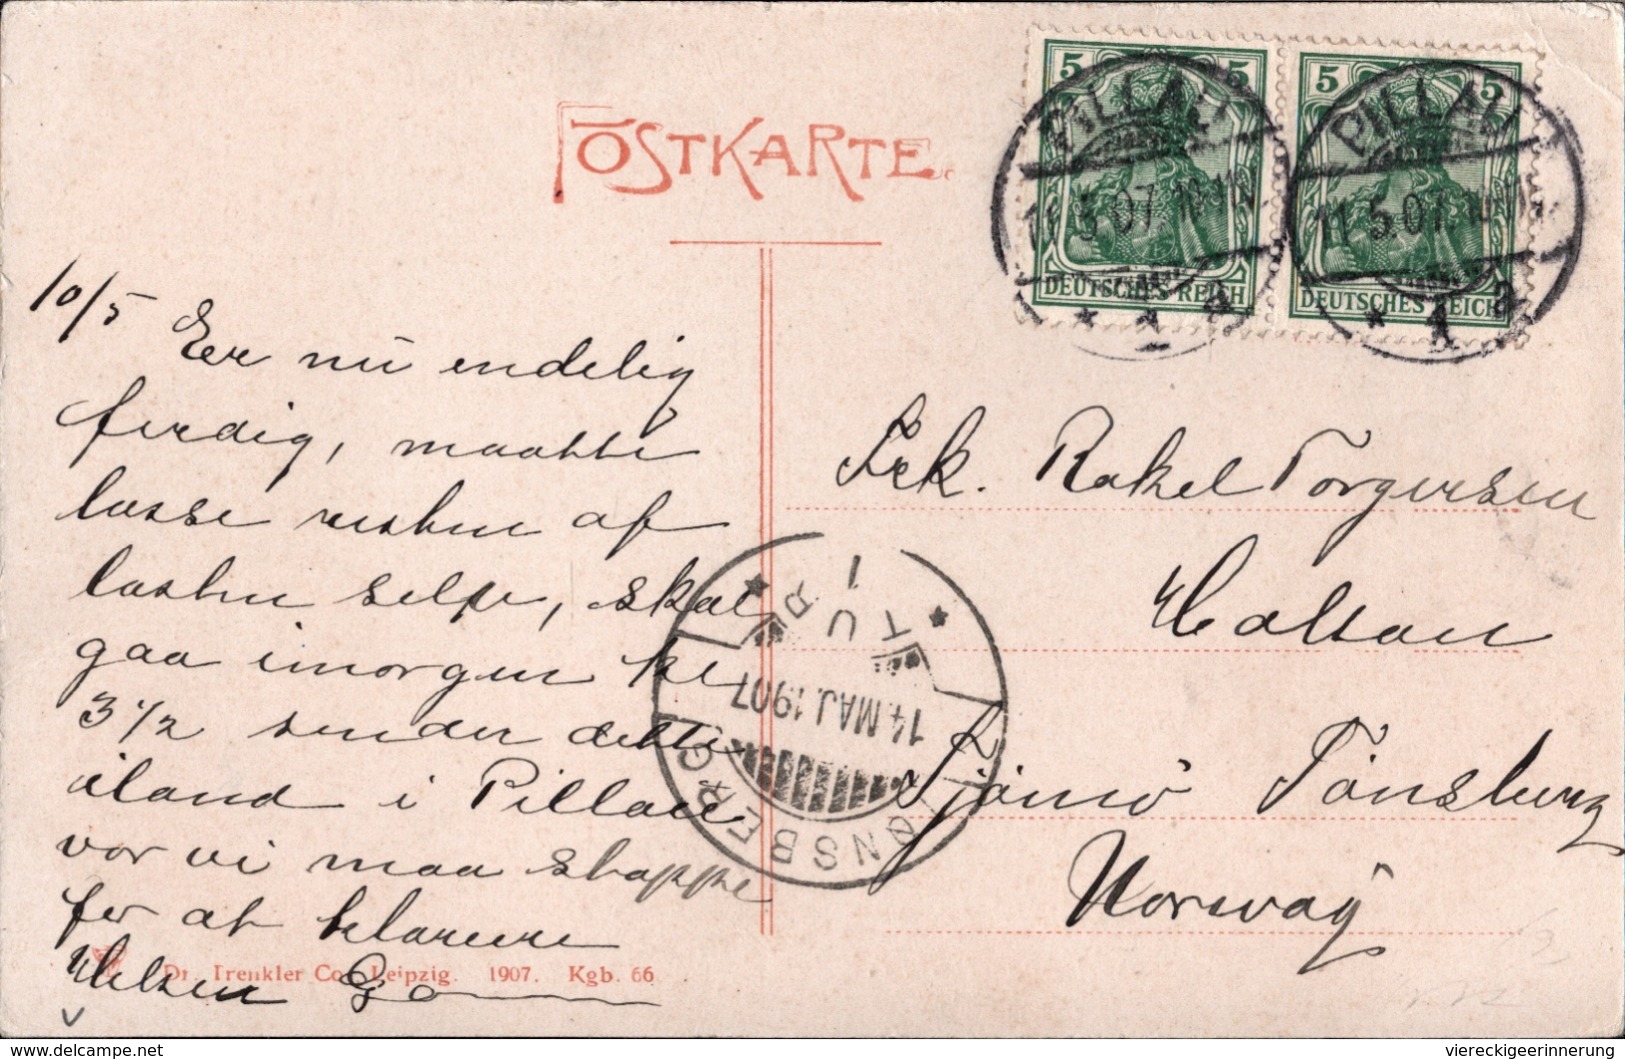 POSTKARTE.
5 5
DEUTSCHES REICH
5 5
DEUTSCHES REICH
PILLAU
11.5.07. 10-11V.
* 1 a
PILLAU
11.5.07. 10-11V.
* 1 a
10/5
Eer nu endelig
ferdig, maatte
losse resten af
lasten selfe, skal
gaa imorgen kl
3 1/2 sender dette
iland i Pillau
vor vi maa stoppe
for at klarere
Helsen Go
Frk. Rakel Torgersen
Haltan
Tjømø Tönsberg
Norway
TUR 1
14. MAJ. 1907
TØNSBERG
Dr. Trenkler Co., Leipzig. 1907. Kgb. 66
delcampe.net
viereckigeerinnerung